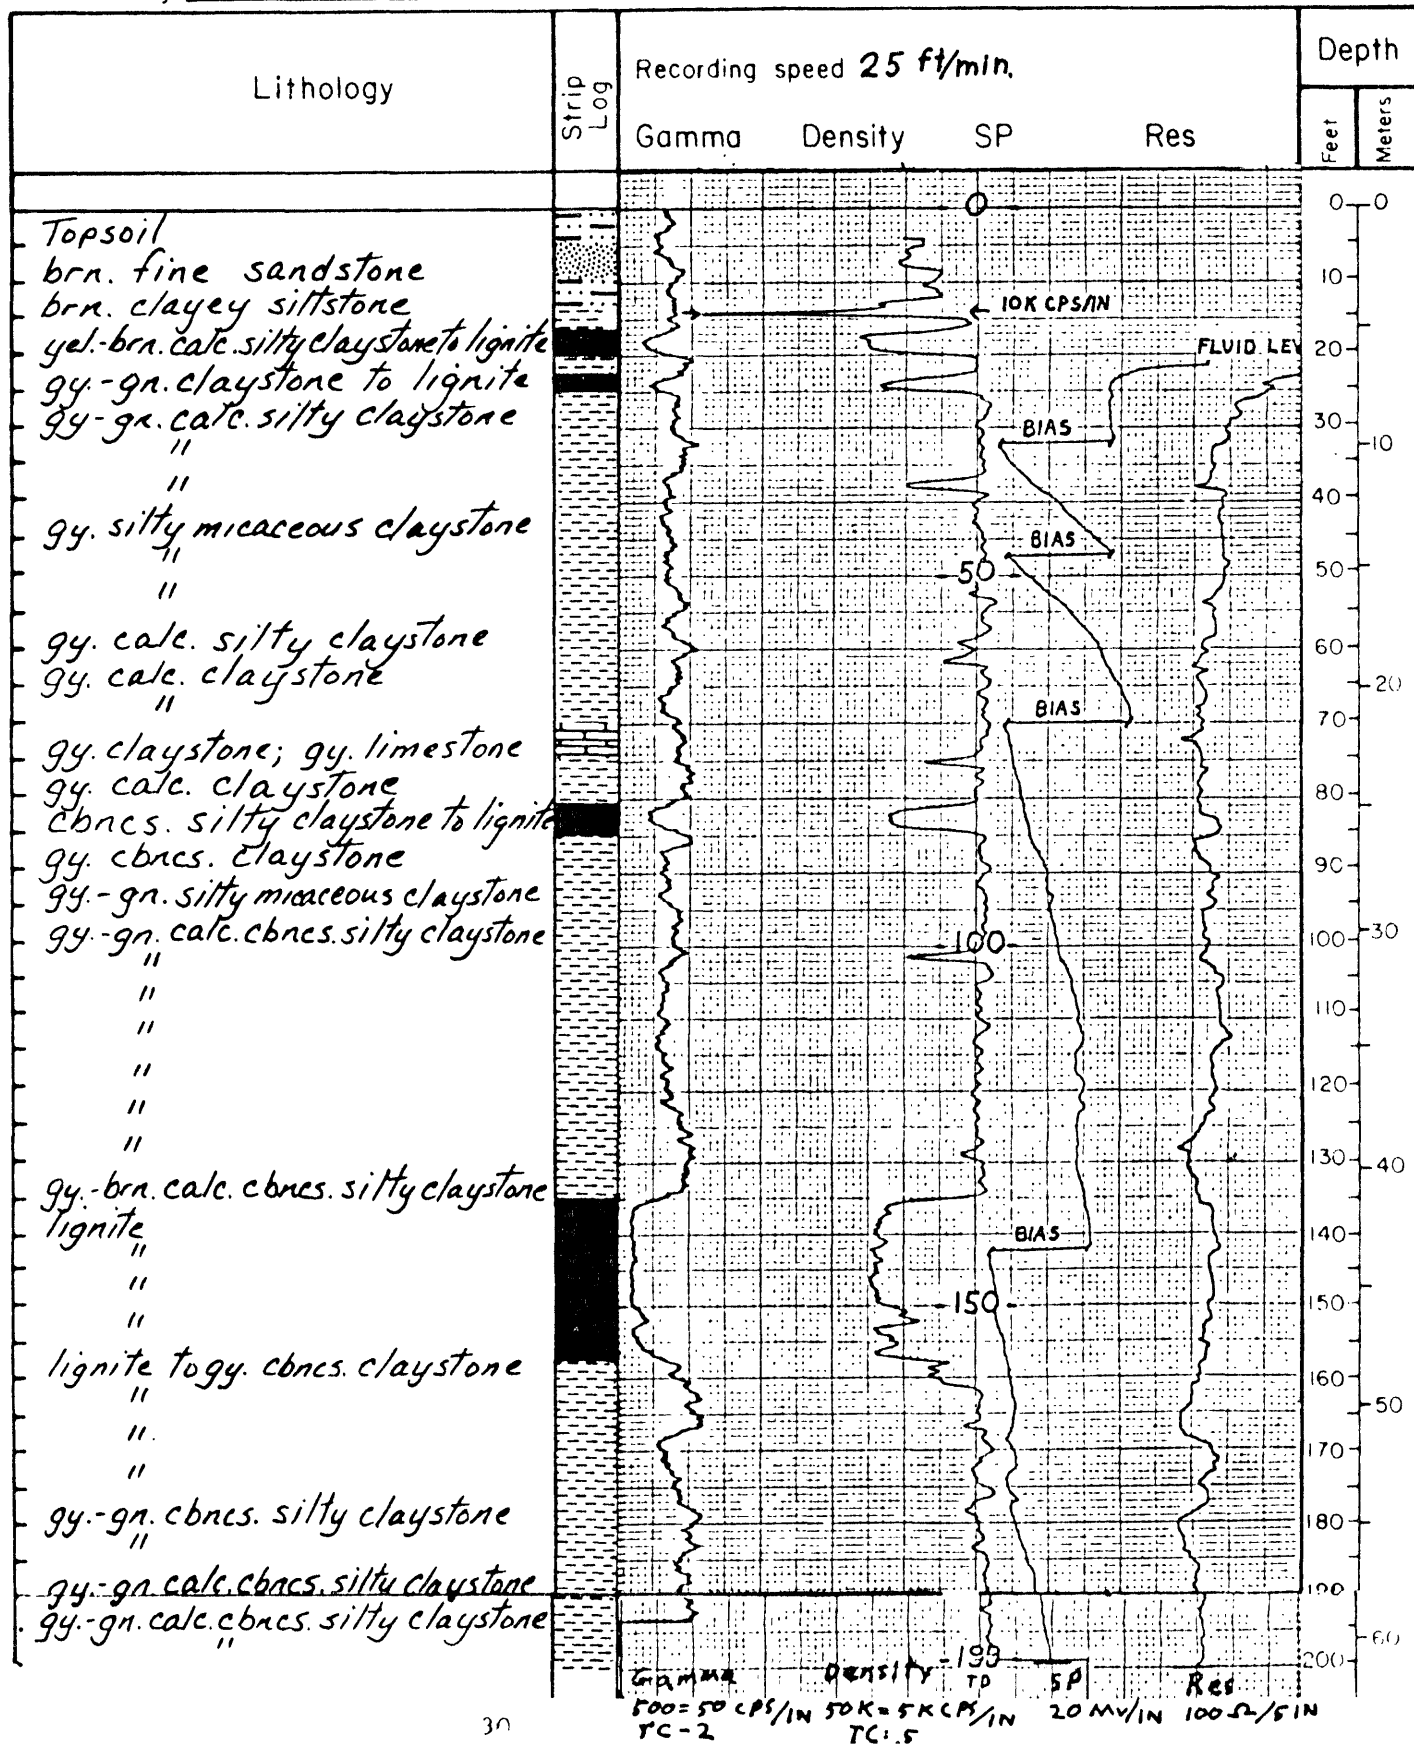 Lithology
Strip Log
Recording speed 25 ft/min.
Gamma Density SP Res
Depth
Feet Meters
Topsoil
brn. fine sandstone
brn. clayey siltstone
yel.-brn. calc. silty claystone to lignite
gy.-gn. claystone to lignite
gy-gn. calc. silty claystone
"
"
gy. silty micaceous claystone
"
"
gy. calc. silty claystone
gy. calc. claystone
"
gy. claystone; gy. limestone
gy. calc. claystone
cbncs. silty claystone to lignite
gy. cbncs. claystone
gy.-gn. silty micaceous claystone
gy.-gn. calc. cbncs. silty claystone
"
"
"
"
"
"
gy.-brn. calc. cbncs. silty claystone
lignite
"
"
"
lignite to gy. cbncs. claystone
"
"
"
gy.-gn. cbncs. silty claystone
"
gy.-gn calc. cbncs. silty claystone
gy.-gn. calc. cbncs. silty claystone
"
0
10K CPS/IN
FLUID LEV
BIAS
BIAS
50
BIAS
100
BIAS
150
199
TD
0
10
20
30
40
50
60
70
80
90
100
110
120
130
140
150
160
170
180
190
200
0
10
20
30
40
50
60
Gamma Density SP Res
500=50 CPS/IN 50K=5K CPS/IN 20 MV/IN 100 Ω/5 IN
TC-2 TC:.5
30